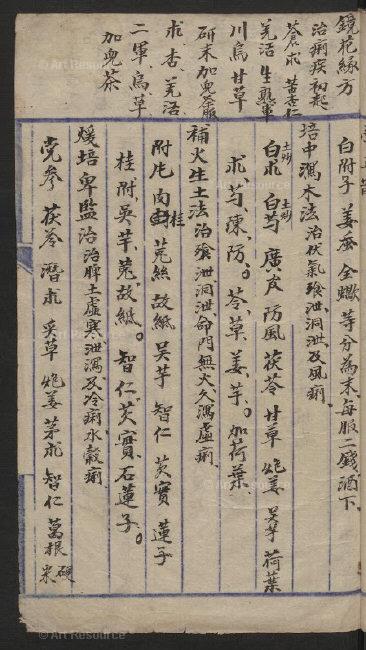 鏡花緣方
治痢疾初起
蒼朮 苦杏仁
羌活 生熟軍
川烏 甘草
研末加兒茶服
朮、杏、羌活、
二軍、烏、草
加兒茶
白附子 姜蚕 全蠍 等分為末、每服二錢、酒下、
培中瀉木法 治伏氣飧泄、洞泄、及風痢、
土炒白朮 土炒白芍 廣皮 防風 茯苓 甘草 炮姜 吳芋 荷葉
朮、芍、陳、防。苓、草、姜、芋。加荷葉、
補火生土法 治飧泄洞泄、命門無火、久瀉虛痢、
附片 肉桂 菟絲 故紙 吳芋 智仁 芡實 蓮子
桂、附、吳芋、菟、故紙。智仁、芡實、石蓮子。
煖培卑監治 治脾土虛寒泄瀉、及冷痢水穀痢、
党參 茯苓 潛朮 炙草 炮姜 茅朮 智仁 葛根 硬米
© Art Resource
© Art Resource
© Art Resource
© Art Resource